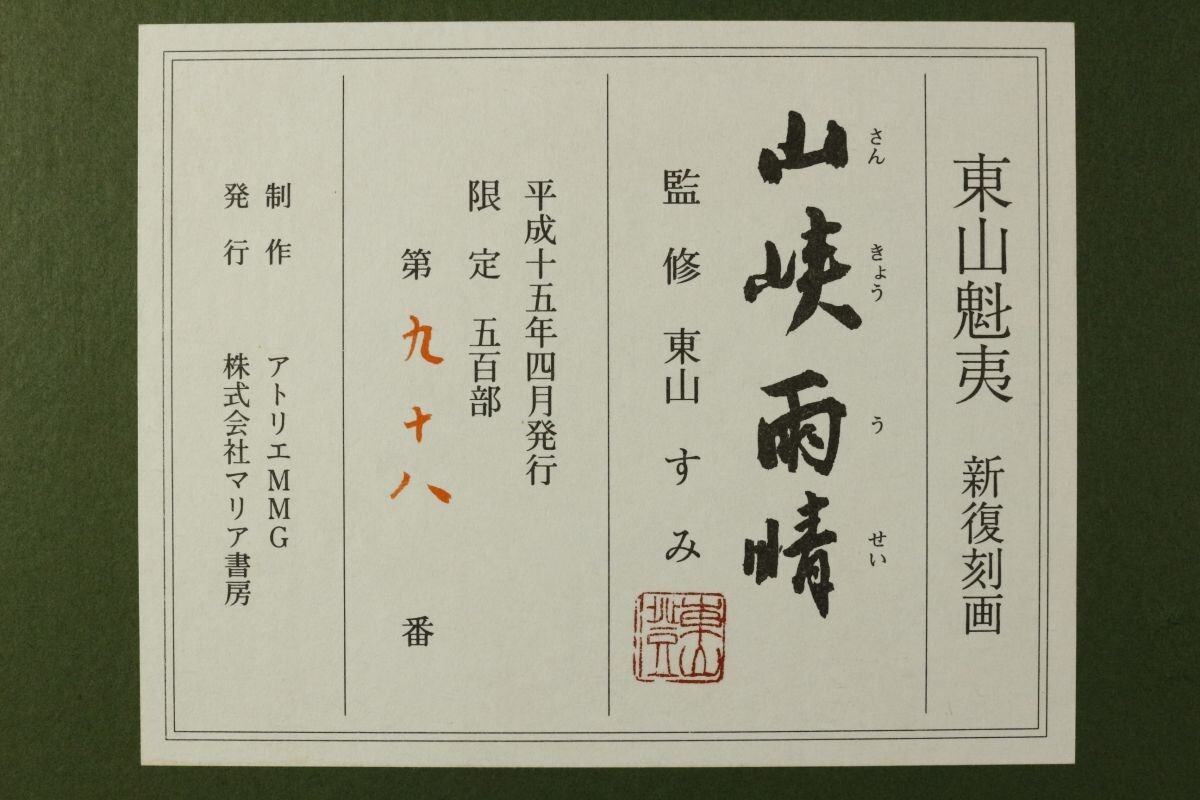 東山魁夷 新復刻画
さんきょううせい
山峡雨晴
監修 東山すみ
東山
平成十五年四月発行
限定 五百部
第九十八番
制作 アトリエMMG
発行 株式会社マリア書房